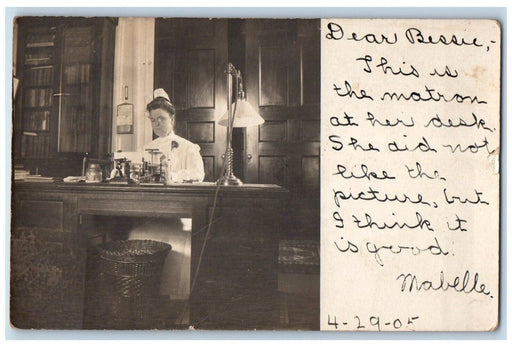 Dear Bessie,-
This is
the matron
at her desk.
She did not
like the
picture, but
I think it
is good.
Mabelle.
4-29-05